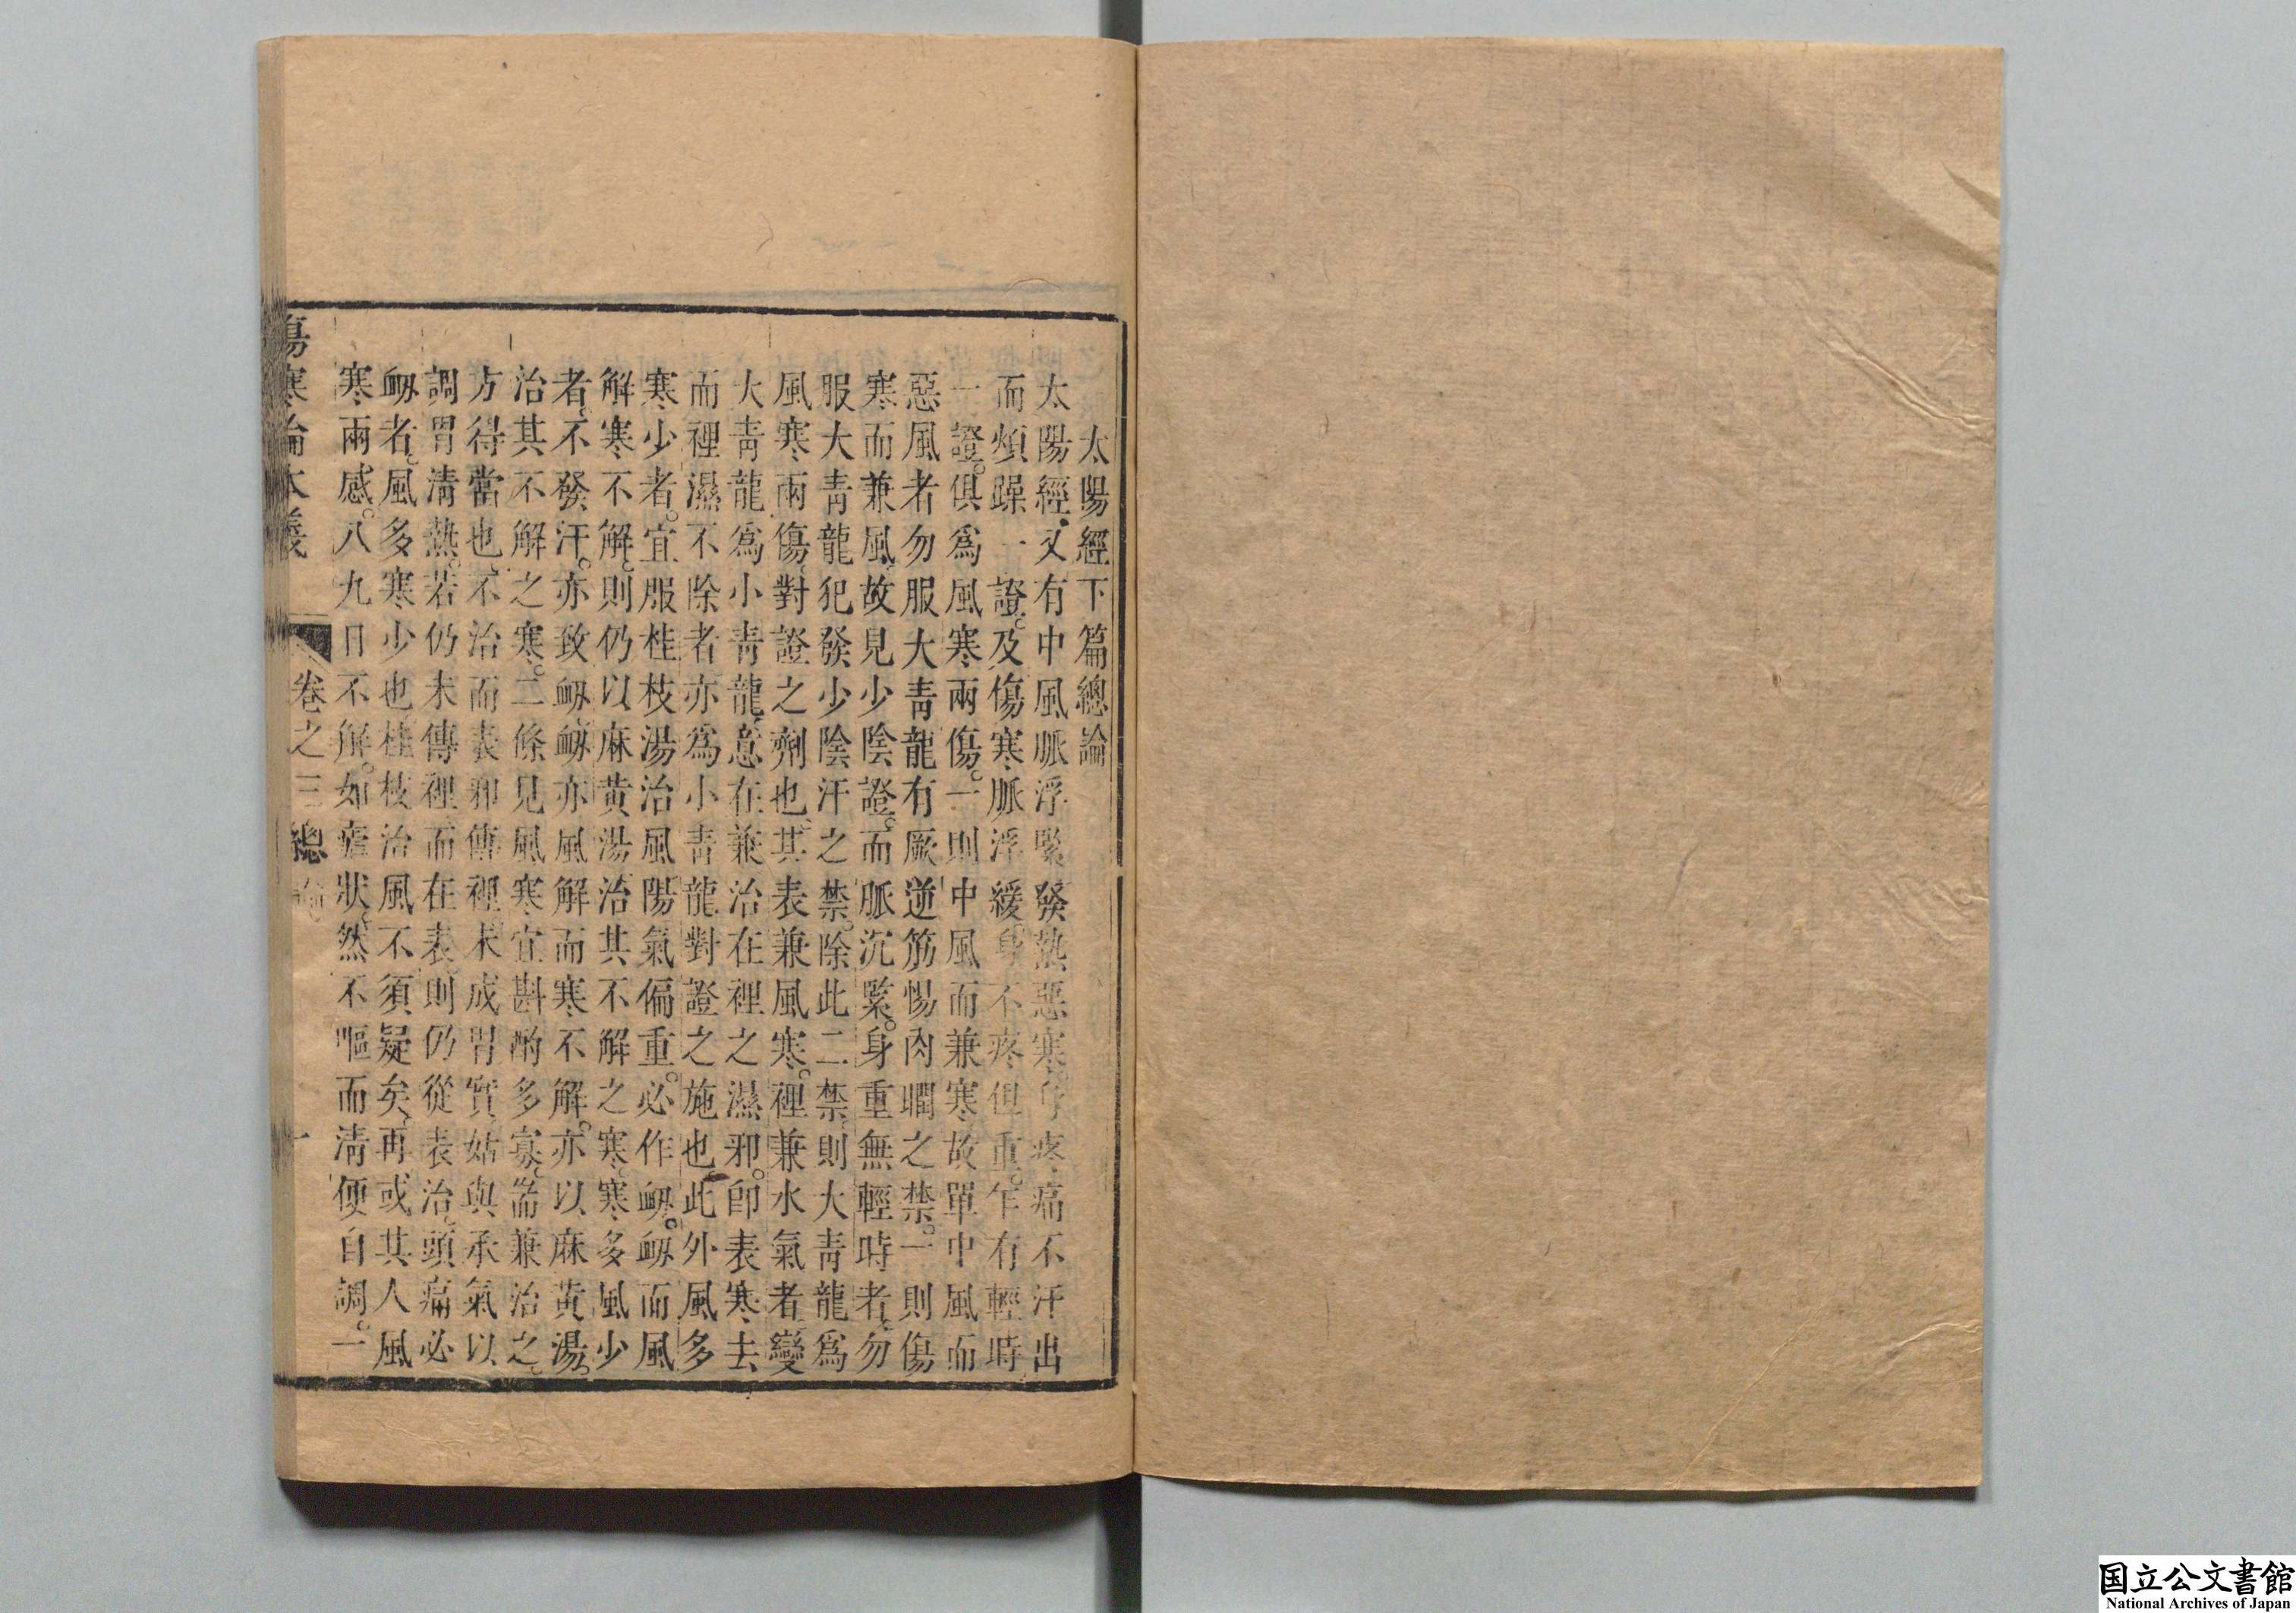 太陽經下篇總論
太陽經又有中風脈浮緊發熱惡寒身疼痛不汗出
而煩躁一證。及傷寒脈浮緩身不疼但重。乍有輕時
一證。俱爲風寒兩傷。一則中風而兼寒故單中風而
惡風者勿服大青龍有厥逆筋惕肉瞤之禁。一則傷
寒而兼風故見少陰證。而脈沉緊。身重無輕時者。勿
服大青龍犯發少陰汗之禁。除此二禁則大青龍爲
風寒兩傷對證之劑也其表兼風寒。裡兼水氣者變
大青龍爲小青龍意在兼治在裡之濕邪。卽表寒去
而裡濕不除者亦爲小青龍對證之施也此外風多
寒少者。宜服桂枝湯治風陽氣偏重。必作衂。衂而風
解寒不解。則仍以麻黃湯治其不解之寒寒多風少
者。不發汗。亦致衂衂亦風解而寒不解。亦以麻黃湯。
治其不解之寒。二條見風寒宜斟酌多寡。耑兼治之。
方得當也。不治而表邪傳裡。未成胃實姑與承氣以
調胃淸熱。若仍未傳裡而在表則仍從表治。頭痛必
衂者。風多寒少也桂枝治風不須疑矣再或其人風
寒兩感。八九日不解。如瘧狀。然不嘔而淸便自調。一
傷寒論本義
卷之三 總論
一
国立公文書館
National Archives of Japan